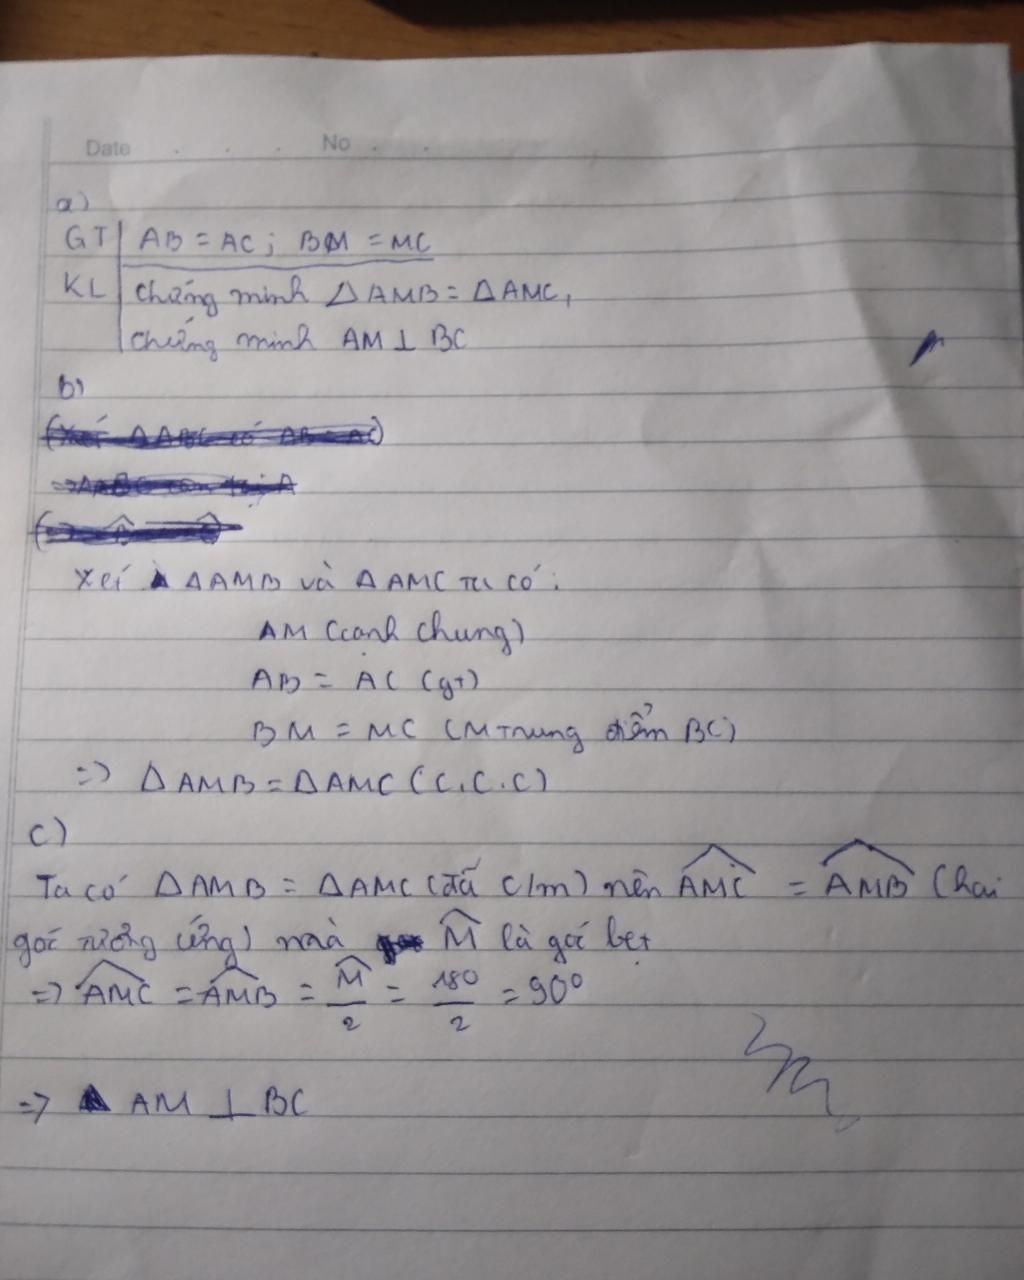 Date . . . No . .
a)
GT AB = AC; BM = MC
KL Chứng minh ΔAMB = ΔAMC,
Chứng minh AM ⊥ BC
b)
Xét ΔAMB và ΔAMC ta có:
AM (cạnh chung)
AB = AC (gt)
BM = MC (M trung điểm BC)
=> ΔAMB = ΔAMC (C.C.C)
c)
Ta có ΔAMB = ΔAMC (đã c/m) nên \widehat{AMC} = \widehat{AMB} (hai
góc tương ứng) mà \widehat{M} là góc bẹt
=> \widehat{AMC} = \widehat{AMB} = \frac{\widehat{M}}{2} = \frac{180}{2} = 90°
=> AM ⊥ BC